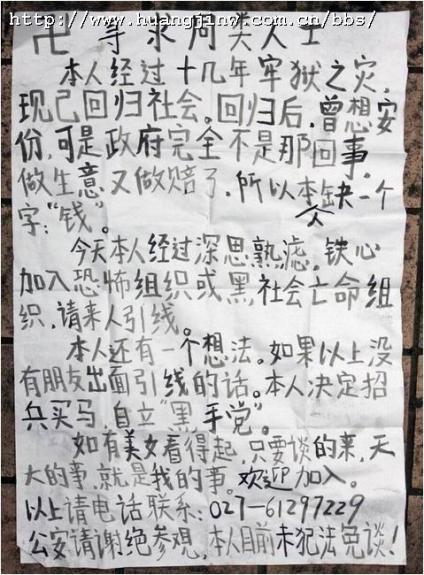 http://www.huangjinw.com.cn/bbs/
卍 寻求同类人士
本人经过十几年牢狱之灾,
现已回归社会。回归后,曾想安
份,可是政府完全不是那回事。
做生意又做赔了,所以本人缺一个
字:“钱”。
今天本人经过深思熟虑,铁心
加入恐怖组织或黑社会亡命组
织,请来人引线。
本人还有一个想法。如果以上没
有朋友出面引线的话。本人决定招
兵买马,自立“黑手党”。
如有美女看得起,只要谈的来,天
大的事,就是我的事。欢迎加入。
以上请电话联系:027-61297229
公安请谢绝参观,本人目前未犯法免谈!